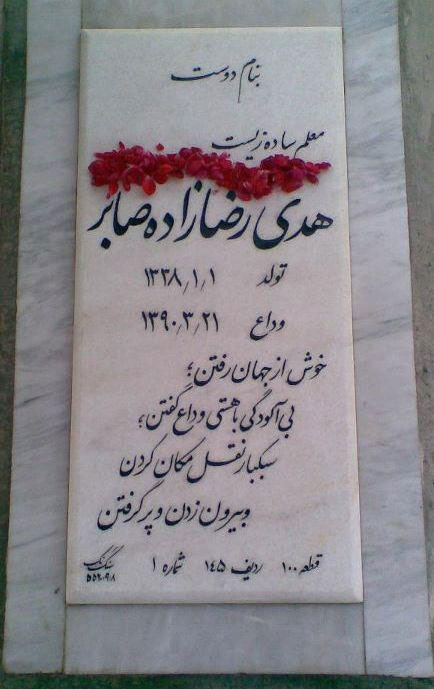 بنام دوست
معلم ساده زیست
هدی رضازاده صابر
تولد ۱۳۳۸/۱/۱
وداع ۱۳۹۰/۳/۲۱
خوش از جهان رفتن؛
بی آلودگی با هستی وداع گفتن؛
سبکبار نقل مکان کردن
و بیرون زدن و پر گرفتن
قطعه ۱۰۰ ردیف ۱۴۵ شماره ۱